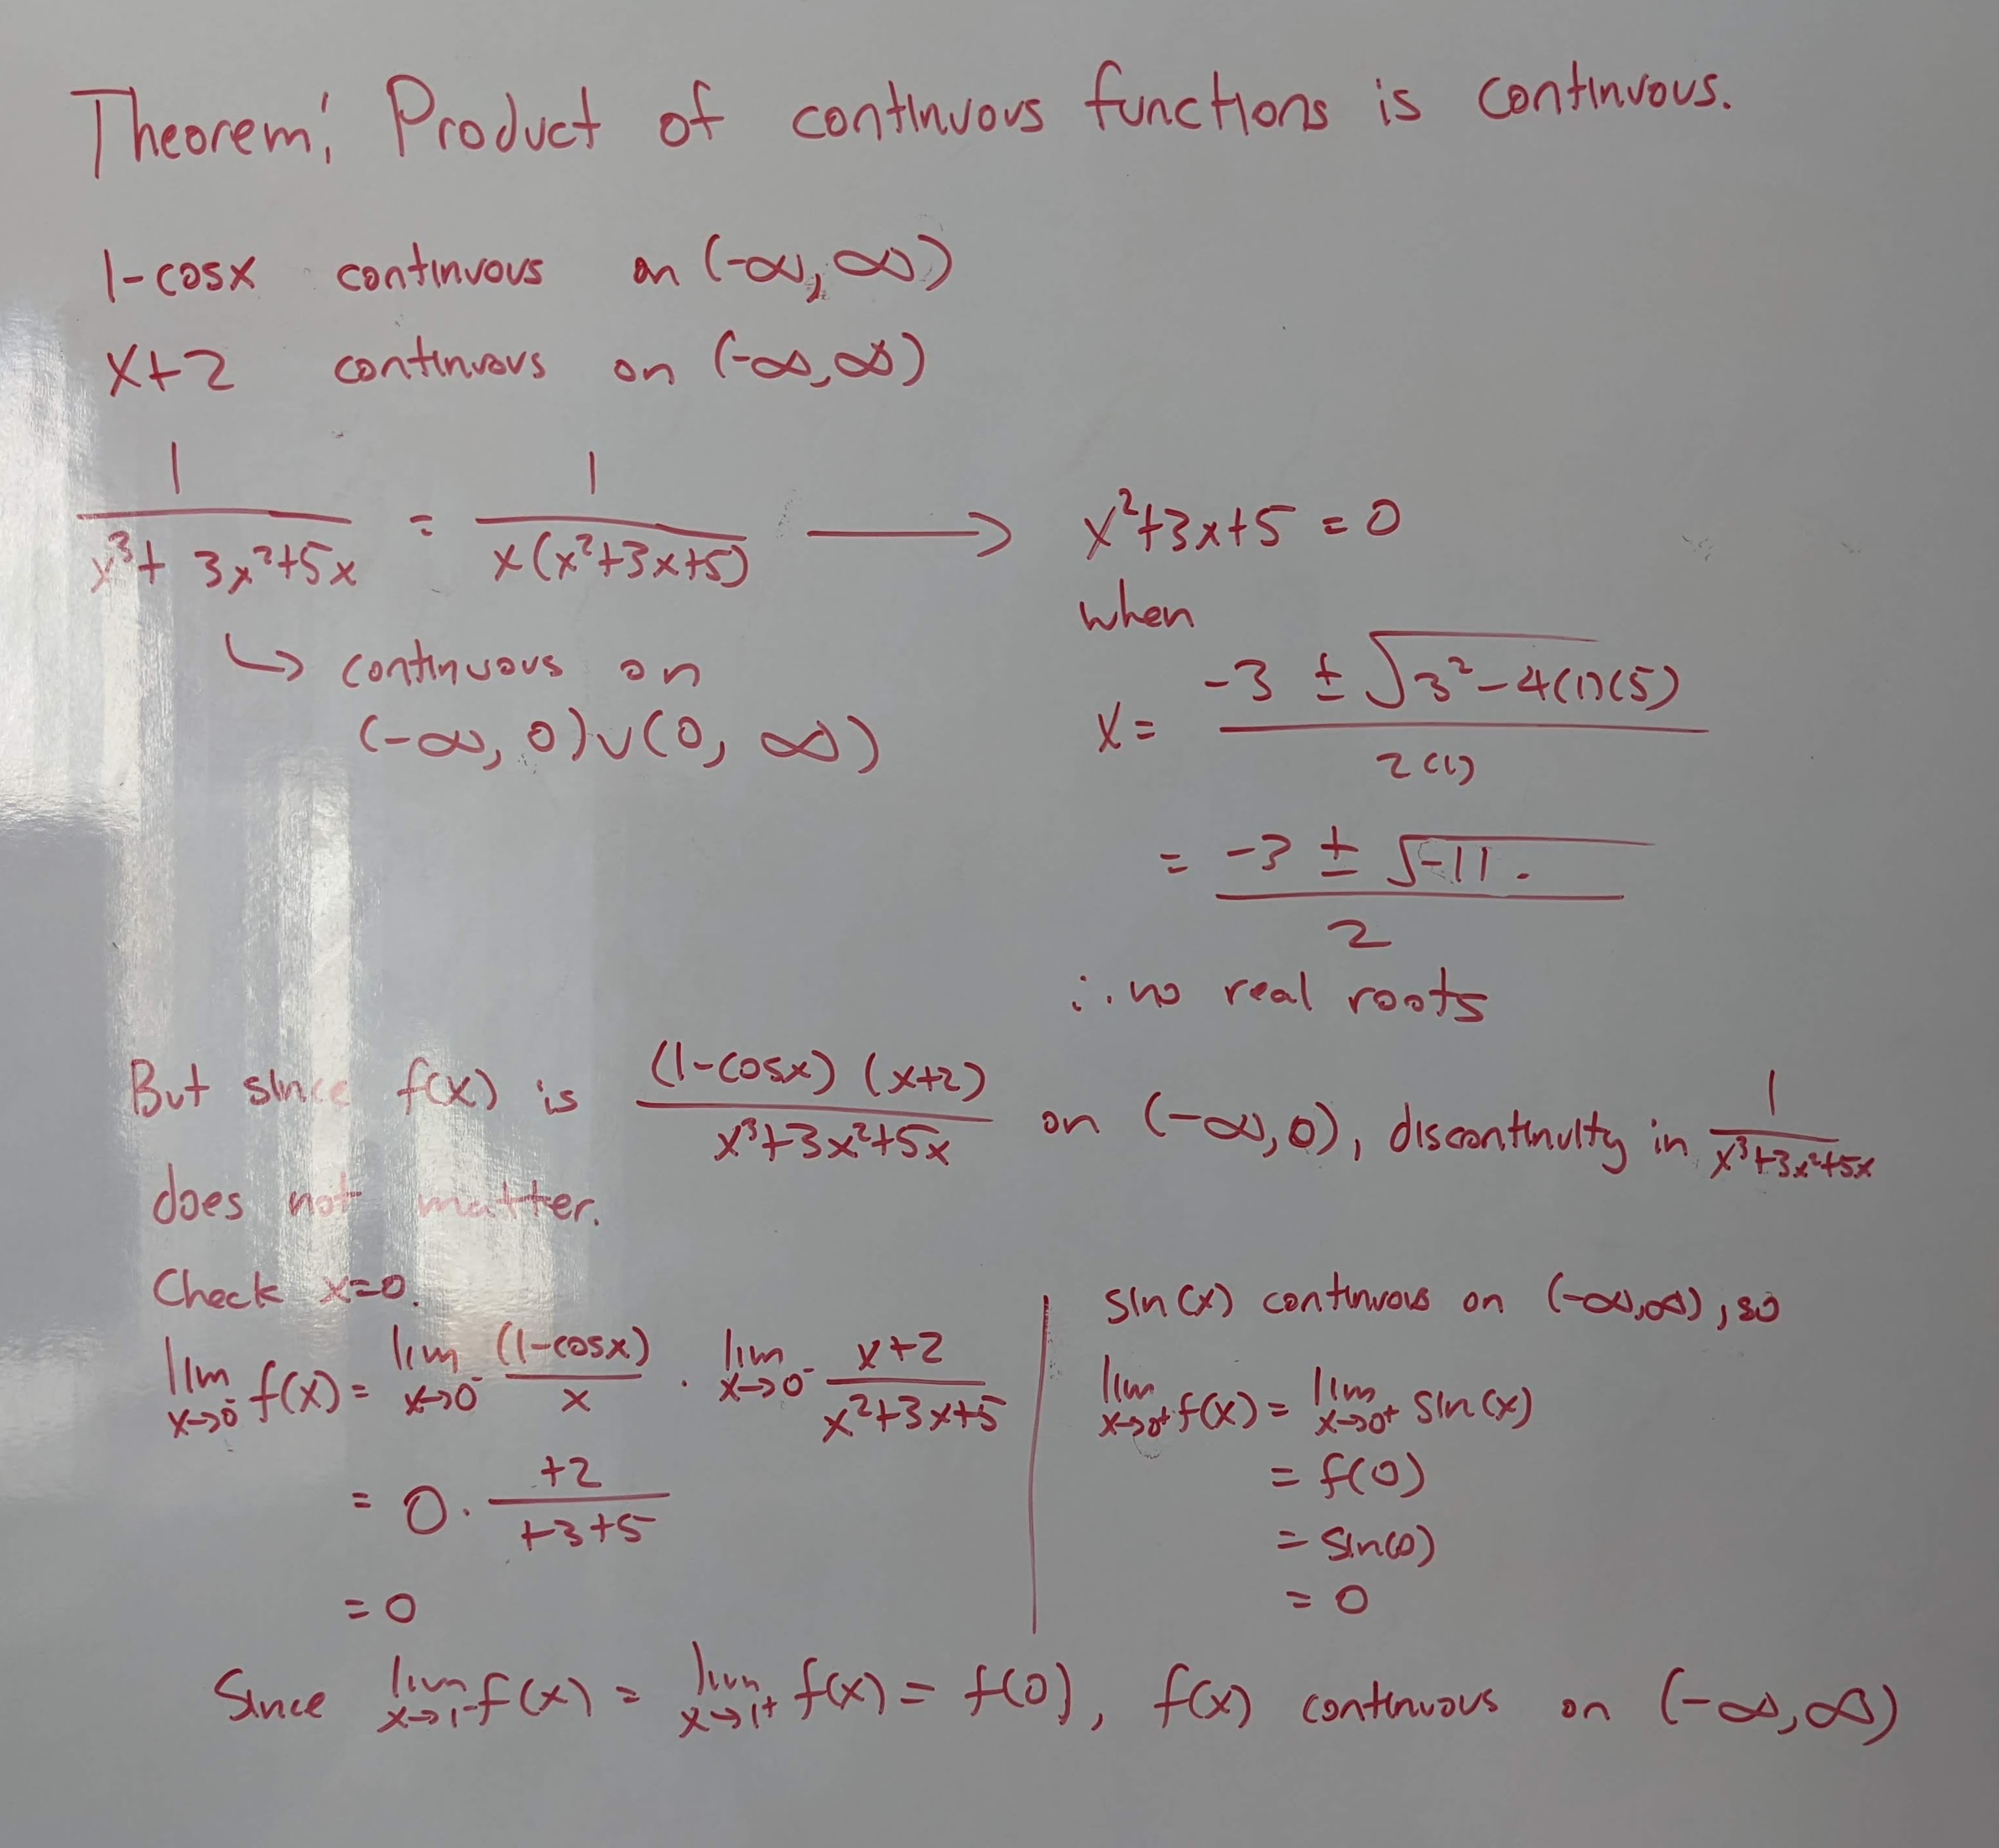 Theorem: Product of continuous functions is continuous.
1-cosx continuous on (-∞, ∞)
x+2 continuous on (-∞, ∞)
1/(x³+3x²+5x) = 1/(x(x²+3x+5)) → x²+3x+5 = 0
when
↳ continuous on
(-∞, 0)∪(0, ∞)
x = (-3 ± √(3²-4(1)(5)))/(2(1))
= (-3 ± √-11.)/2
∴ no real roots
But since f(x) is ((1-cosx)(x+2))/(x³+3x²+5x) on (-∞,0), discontinuity in 1/(x³+3x²+5x)
does not matter.
Check x=0.
lim x→0⁻ f(x) = lim x→0⁻ (1-cosx)/x · lim x→0⁻ (x+2)/(x²+3x+5)
= 0 · (+2)/(+3+5)
= 0
sin(x) continuous on (-∞,∞), so
lim x→0⁺ f(x) = lim x→0⁺ sin(x)
= f(0)
= sin(0)
= 0
Since lim x→1⁻ f(x) = lim x→1⁺ f(x) = f(0), f(x) continuous on (-∞,∞)